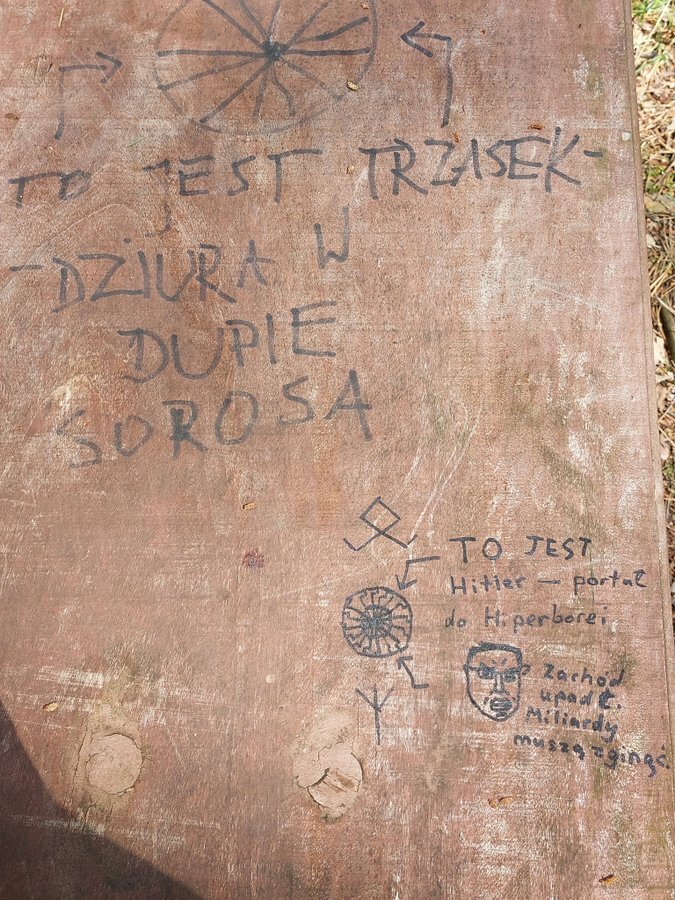 TO JEST TRZASEK-
-DZIURA W
DUPIE
SOROSA
TO JEST
Hitler — portal
do Hiperborei
Zachód
upadł.
Miliardy
muszą zginąć